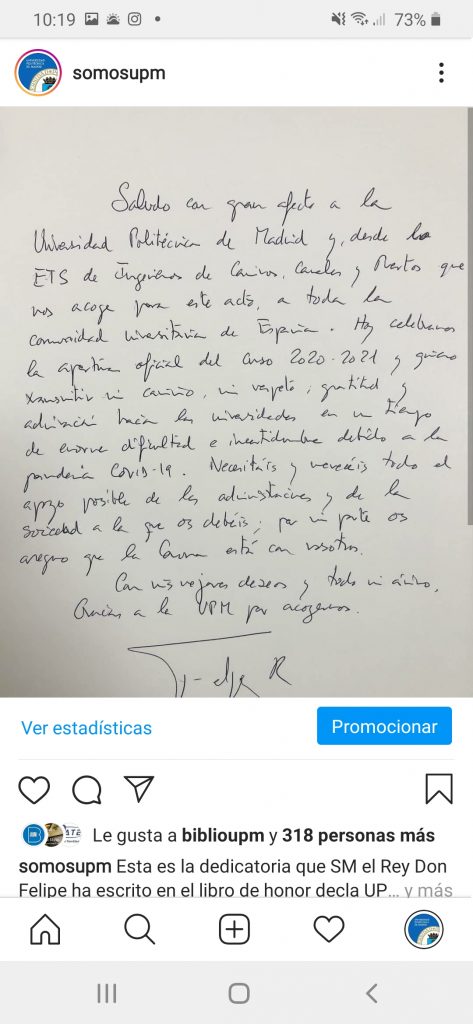 10:19
73%
somosupm
Saludo con gran afecto a la
Universidad Politécnica de Madrid y, desde la
ETS de Ingenieros de Caminos, Canales y Puertos que
nos acoge para este acto, a toda la
comunidad universitaria de España. Hoy celebramos
la apertura oficial del curso 2020-2021 y quiero
transmitir mi cariño, mi respeto, gratitud y
admiración hacia las universidades en un tiempo
de enorme dificultad e incertidumbre debido a la
pandemia COVID-19. Necesitáis y merecéis todo el
apoyo posible de las administraciones y de la
sociedad a la que os debéis; por mi parte os
aseguro que la Corona está con vosotros.
Con mis mejores deseos y todo mi ánimo,
Gracias a la UPM por acogernos.
R
Ver estadísticas
Promocionar
Le gusta a biblioupm y 318 personas más
somosupm Esta es la dedicatoria que SM el Rey Don
Felipe ha escrito en el libro de honor decla UP... y más